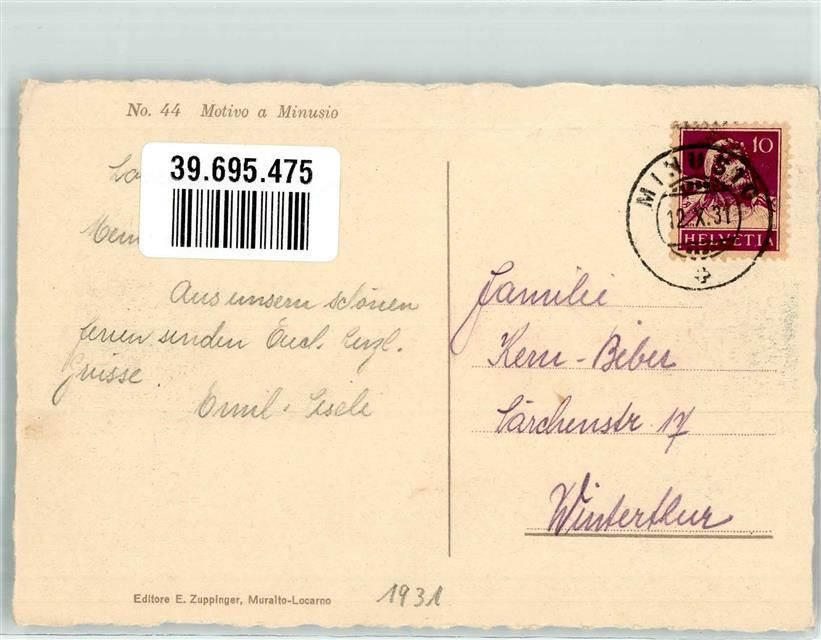 No. 44 Motivo a Minusio
39.695.475
Aus unsern schönen
ferien senden Euch herzl.
Grüsse.
Emil. Liseli
Editore E. Zuppinger, Muralto-Locarno
1931
10
HELVETIA
MINUSIO
12.X.31
Familie
Kern-Biber
Lärchenstr. 17
Winterthur